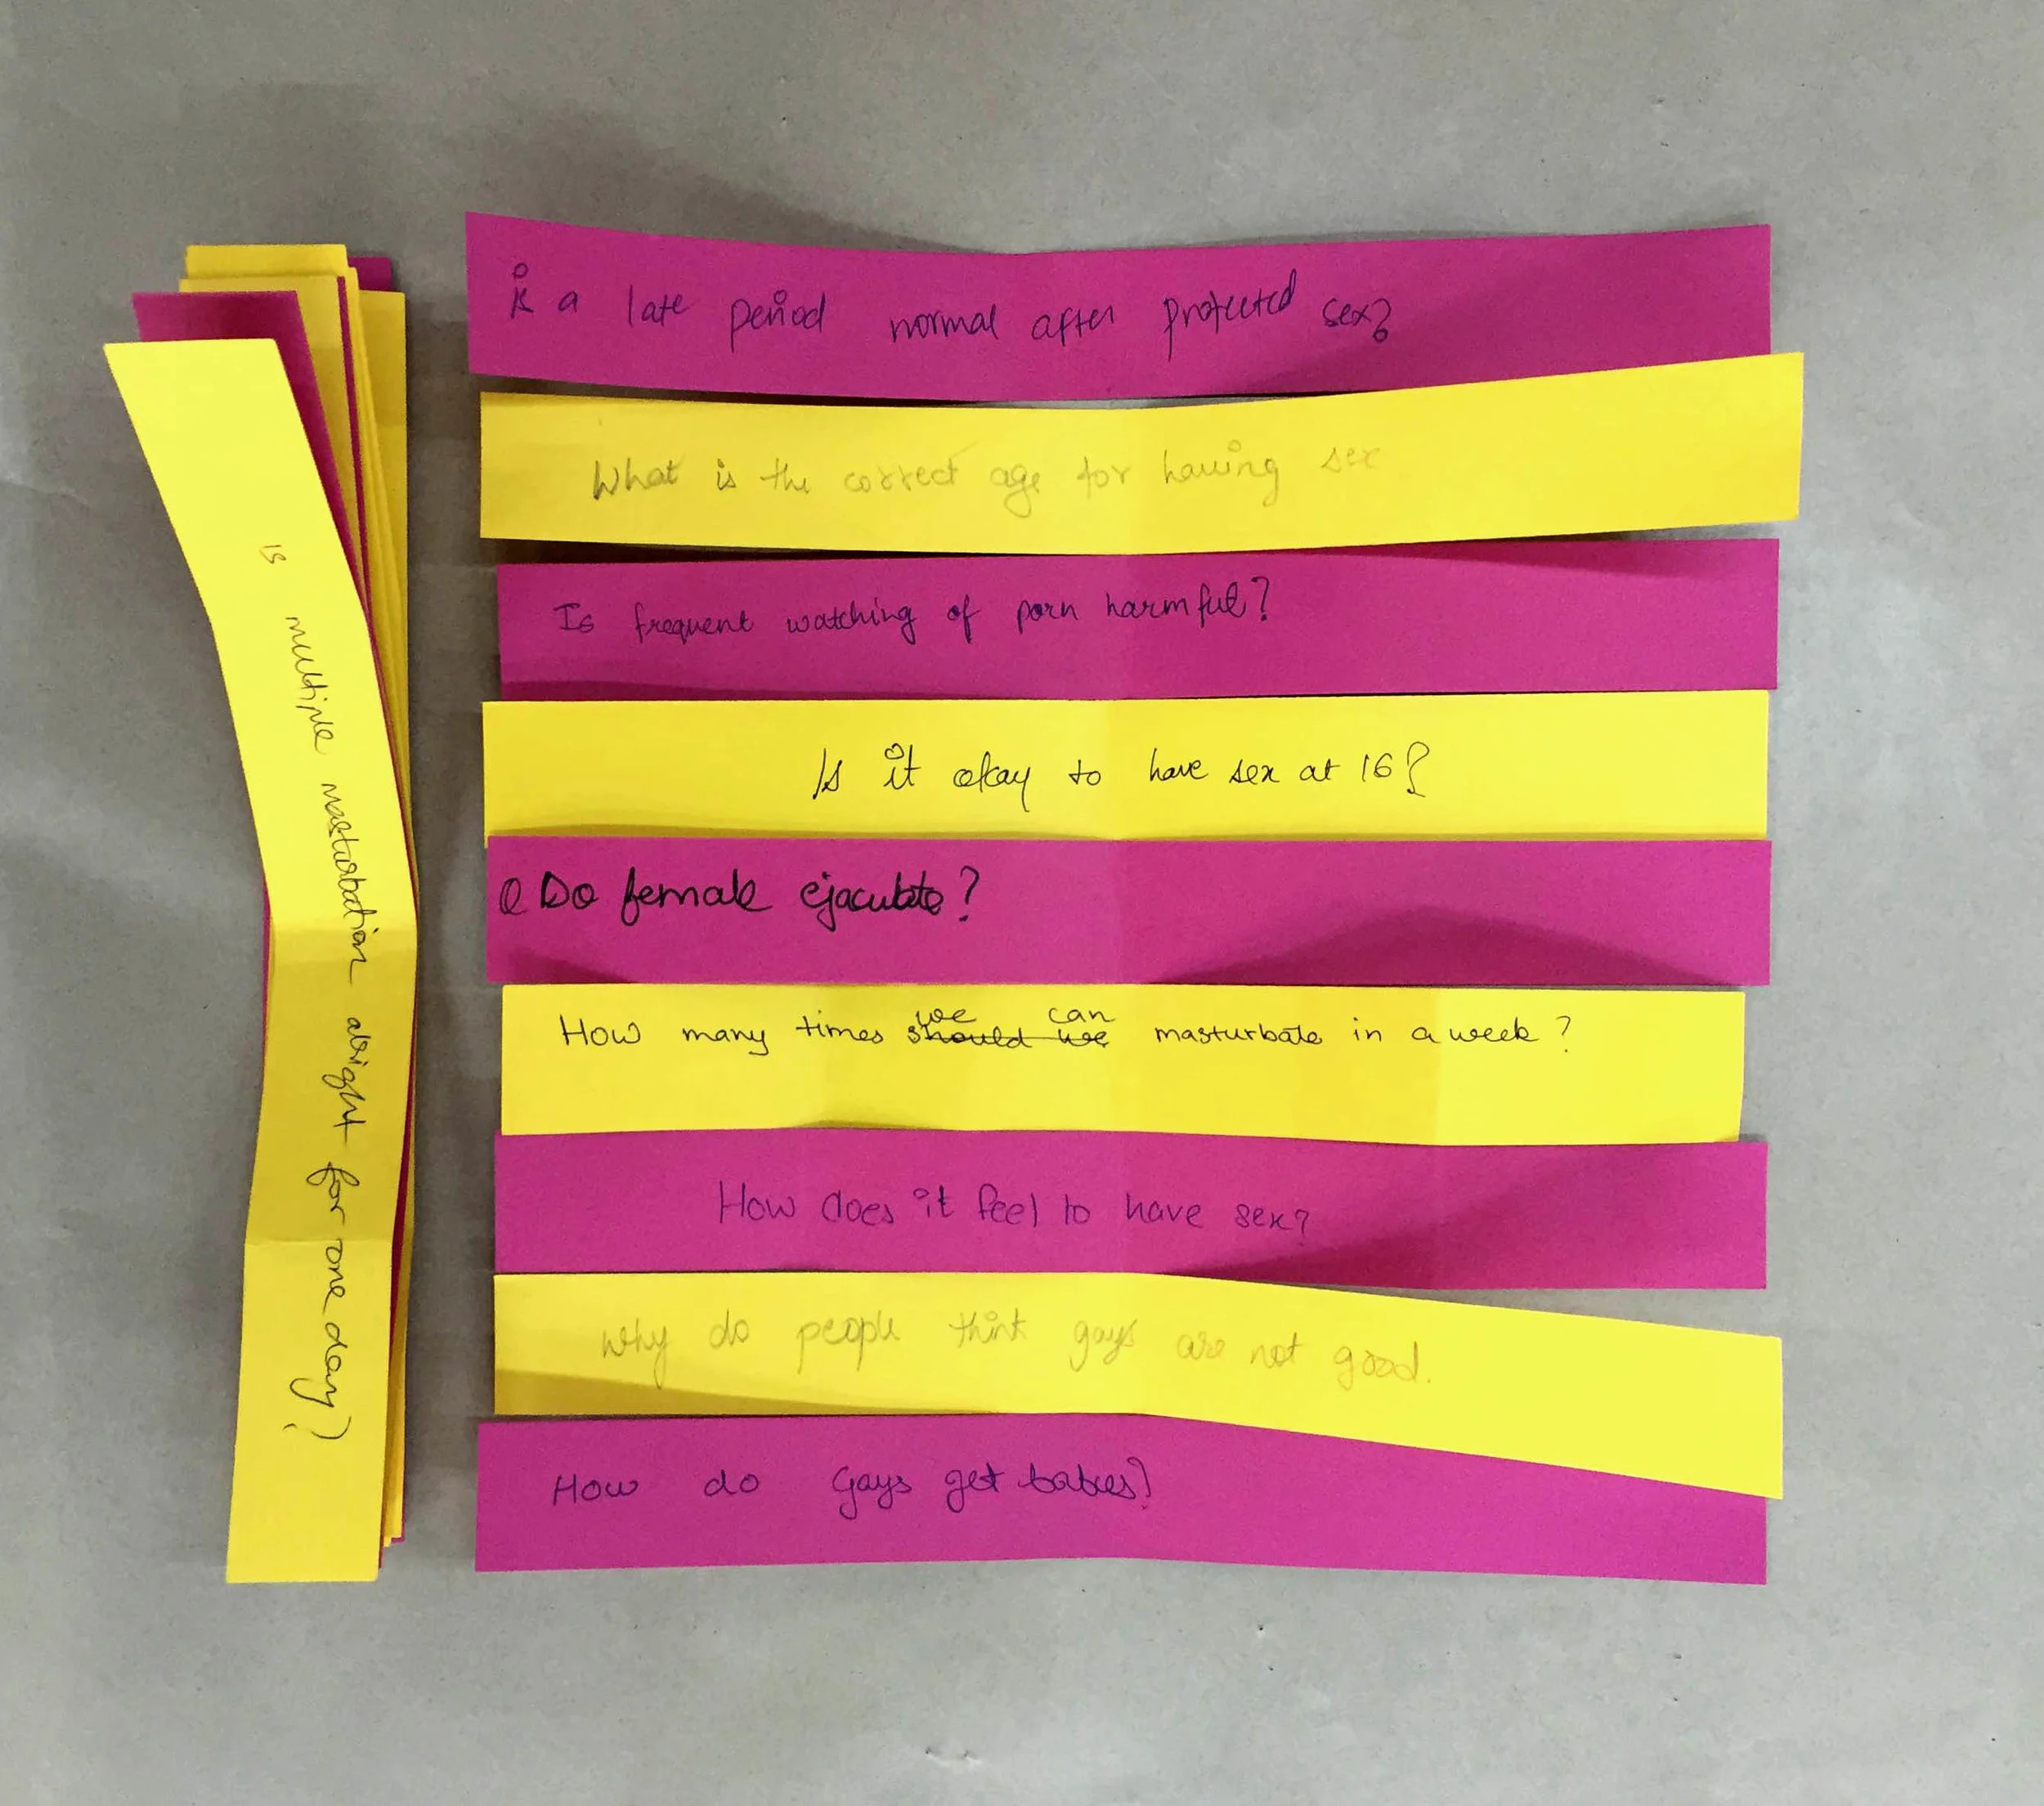 is a late period normal after protected sex?
What is the correct age for having sex
Is frequent watching of porn harmful?
Is it okay to have sex at 16?
Q Do female ejaculate?
How many times should we we can masturbate in a week?
How does it feel to have sex?
Why do people think gays are not good.
How do gays get babies?
is multiple masturbation alright for one day?